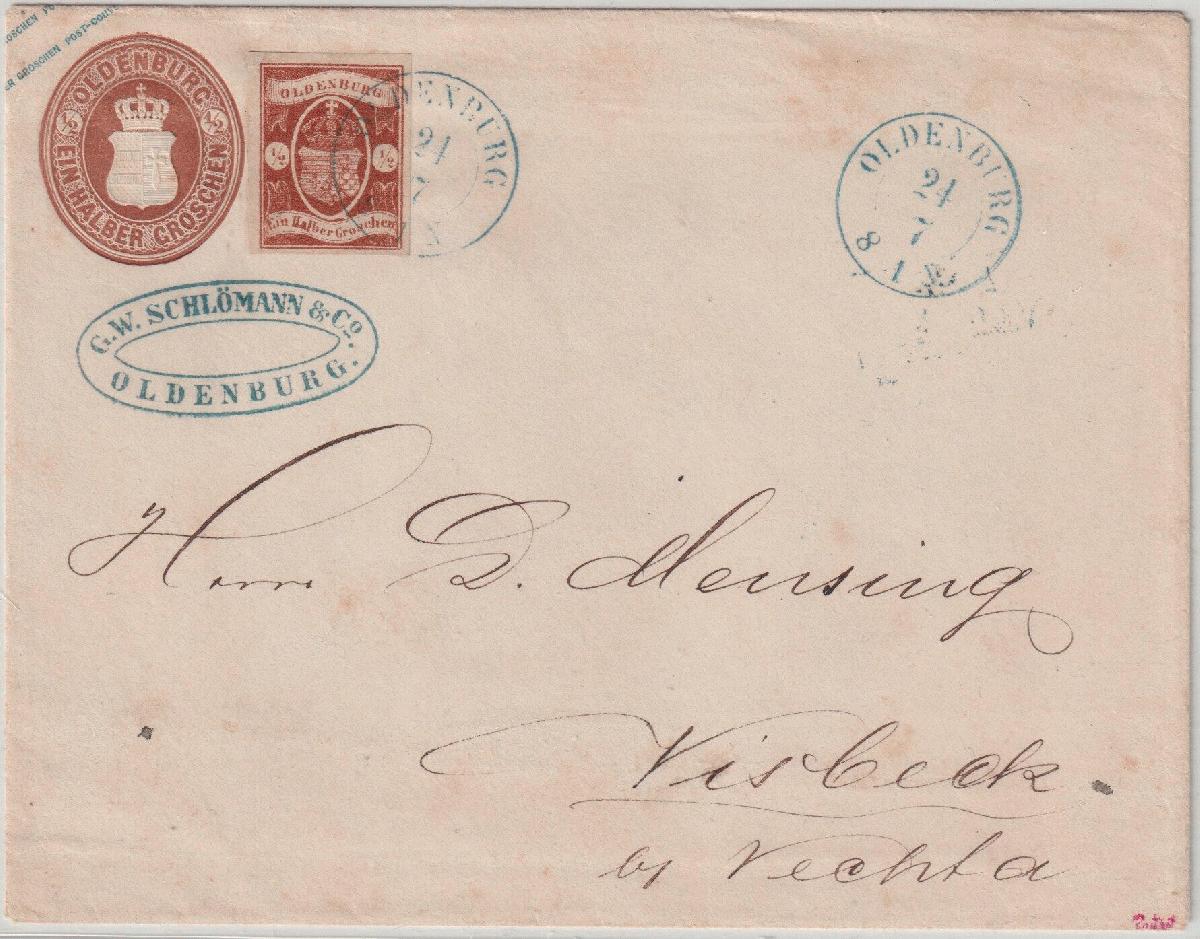 GROSCHEN POST-COUV
ER GROSCHEN
OLDENBURG
½ ½
EIN HALBER GROSCHEN
OLDENBURG
½ ½
Ein Halber Groschen
OLDENBURG
24
7
OLDENBURG
24
7
8
G.W. SCHLÖMANN & Co.
OLDENBURG.
Herrn D. Mensing
Visbeck
by Vechta